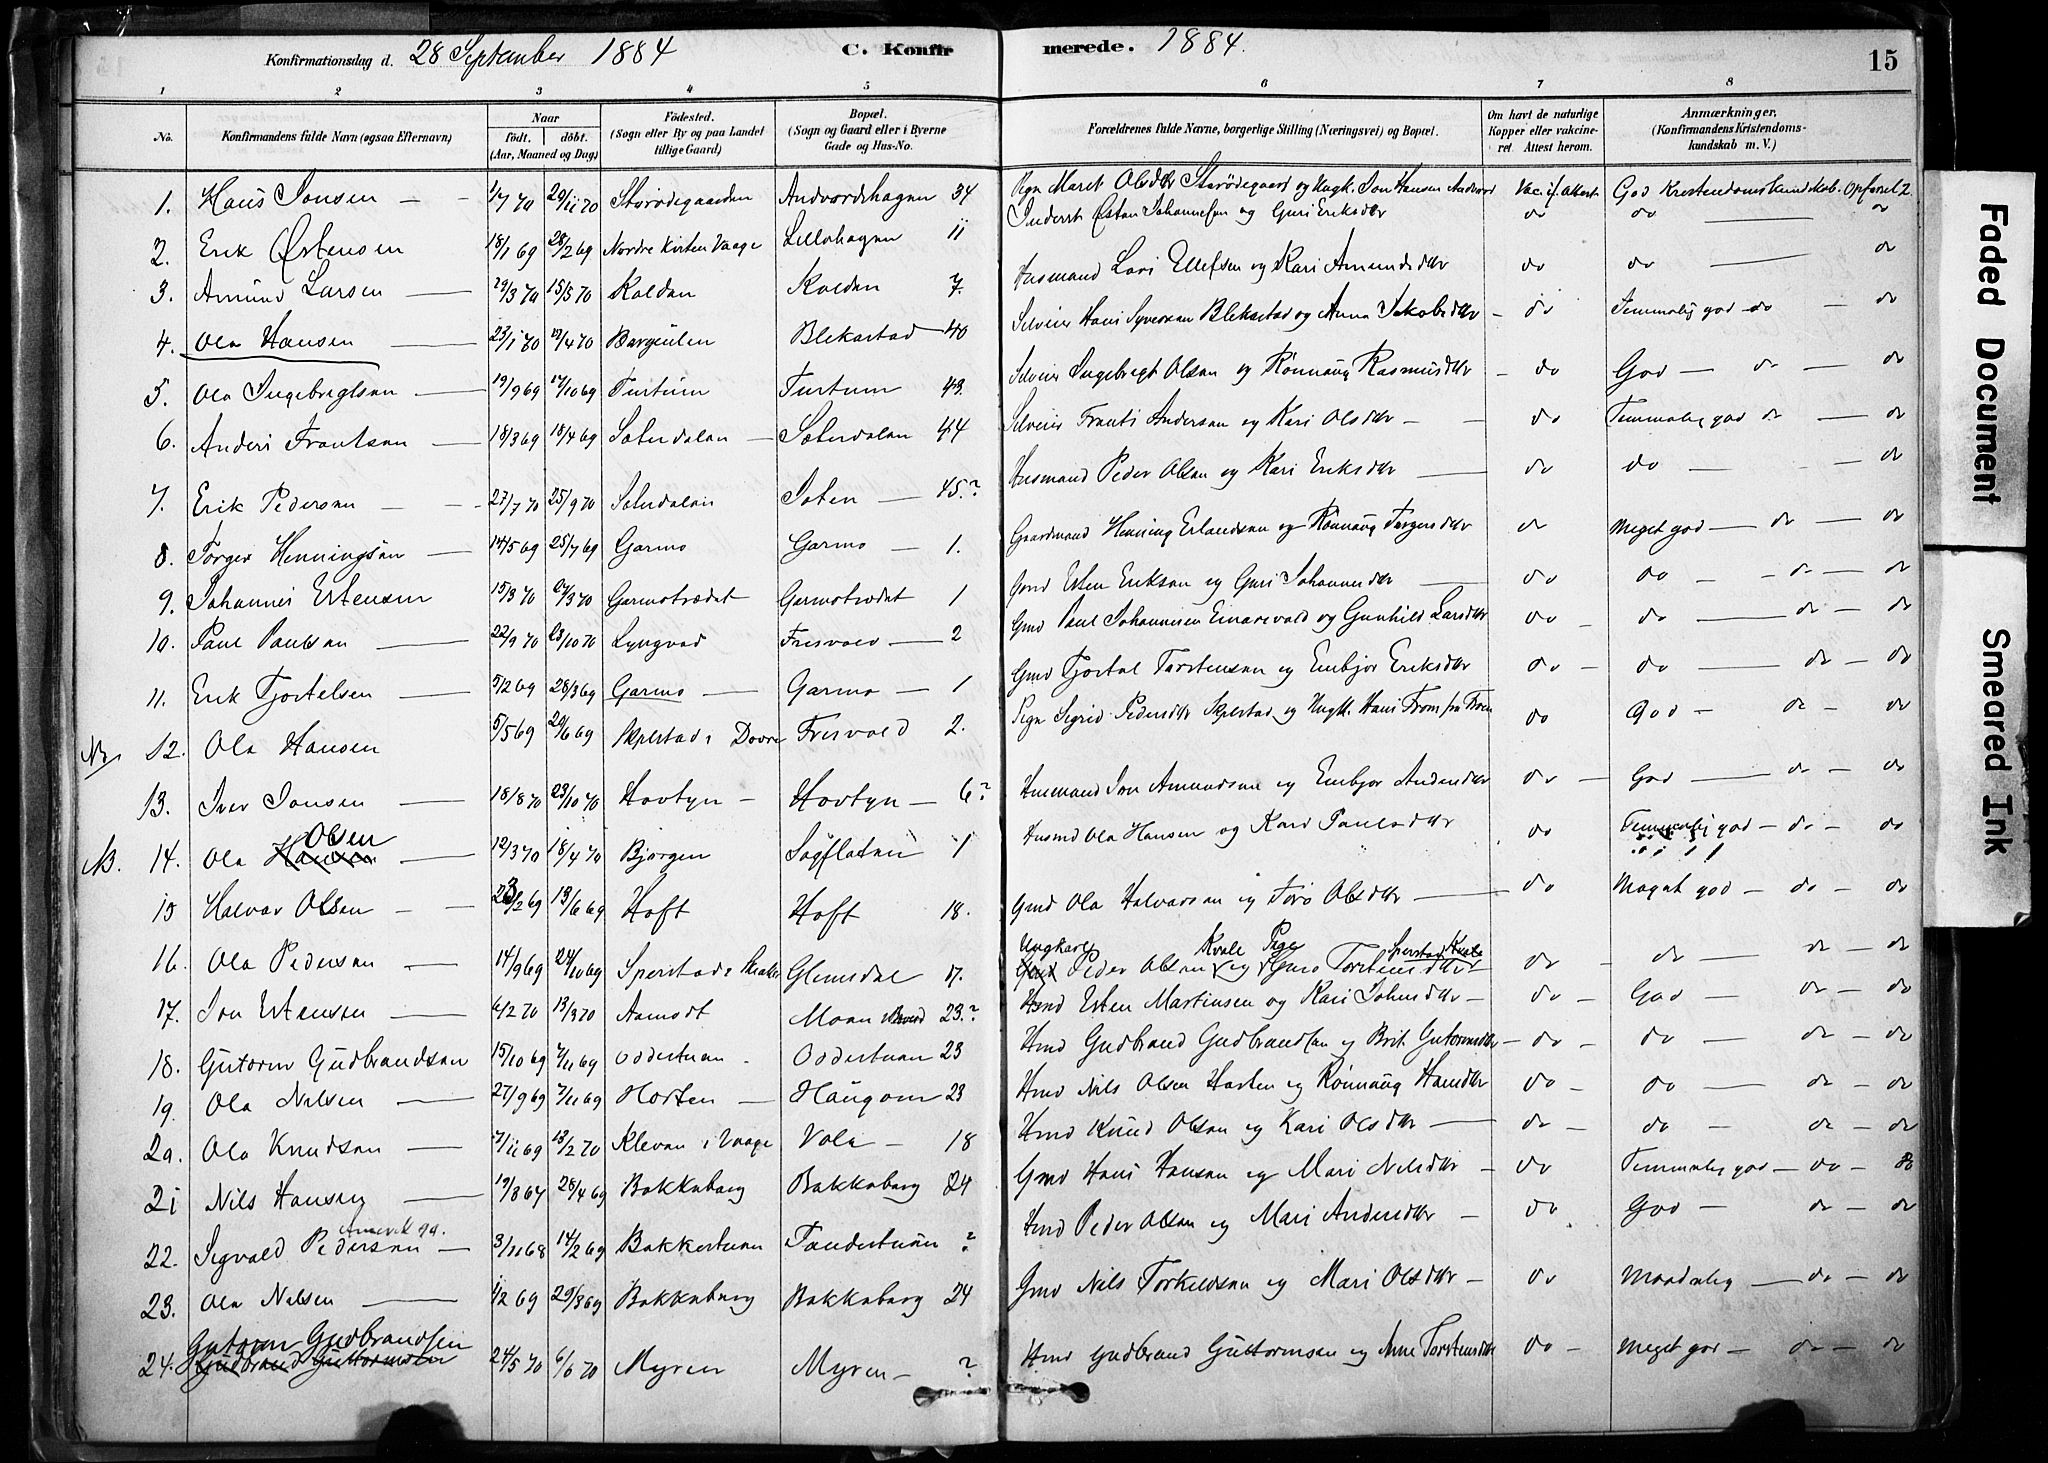 Konfirmationsdag d. 28 September 1884 C. Konfir
merede. 1884.
15
1 2 3 4 5 6 7 8
No. Konfirmandens fulde Navn (ogsaa Efternavn) Naar født. døbt. (Aar, Maaned og Dag) Fødested. (Sogn eller By og paa Landet tillige Gaard) Bopæl. (Sogn og Gaard eller i Byerne Gade og Hus-No. Forældrenes fulde Navne, borgerlige Stilling (Næringsvei) og Bopæl. Om havt de naturlige Kopper eller vakcineret. Attest herom. Anmærkninger. (Konfirmandens Kristendomskundskab m. V.)
1. Hans Jonsen 1/7 70 20/11 70 Andvordshagen 34 Marit Olsdtr og Ungk. Jon Hansen Vac. if. Attest God Kristendomskundskab. Opførsel
2. Erik Østensen 18/1 69 28/2 69 Nordre Kirten Vaage Lillehagen 11 Inderst Østen Johannesen og Guri Eriksdtr do do do
3. Amund Larsen 29/3 70 15/5 70 Koldan Koldan 7. Husmand Lars Ellefsen og Kari Amundsdtr do do do
4. Ola Hansen 23/1 70 Blekastad 40 Selveier Hans Syversen Blekastad og Anna Jakobsdtr do Temmelig god do do
5. Ola Ingebrigtsen 19/9 69 17/10 69 Turtum Turtum 43. Selveier Ingebrigt Olsen og Rønnaug Rasmusdtr do God do do
6. Anders Frantsen 18/3 69 18/4 69 Soterdalen Soterdalen 44 Selveier Frants Andersen og Kari Olsdtr do Temmelig god do do
7. Erik Pedersen 27/7 70 25/9 70 Soterdalen Soten 45? Husmand Peder Olsen og Kari Eriksdtr do do do
8. Torger Henningsen 14/5 69 25/7 69 Garmo Garmo 1. Gaardmand Henning Erlandsen og Rønnaug Torgersdtr do Meget god do do
9. Johannes Estensen 15/3 70 27/3 70 Garmotrædet Garmotrædet 1 Gmd Esten Eriksen og Guri Johannesdtr do do do do
10. Paul Paulsen 22/9 70 23/10 70 Lyngved Fresvold 2 Gmd Paul Johannesen og Gunhild Larsdtr do do do do
11. Erik Tjostelsen 5/2 69 28/3 69 Garmo Garmo 1 Gmd Tjostel Torstensen og Embjør Eriksdtr do do do do
NB. 12. Ola Hansen 5/5 69 20/6 69 Skjelstad i Dovre Fresvold 2. Pige Sigrid Pedersdtr Skjelstad og Ungk. Hans Trom fra Fron do God do do
13. Iver Jonsen 18/8 70 23/10 70 Hovtyn Hovtyn 6? Husmand Jon Amundsen og Embjør Andersdtr do God do do
Olsen
NB. 14. Ola Hansen 12/3 70 18/4 70 Bjørgen Sagflaten 1 Husmd Ola Hansen og Kari Paulsdtr do Temmelig god do do
15 Halvor Olsen 23/2 69 13/6 69 Hoft Hoft 18. Gmd Ola Halvorsen og Toro Olsdtr do Meget god do do
Ungkarl Kvale Pige Sperstad Kvale
16. Ola Pedersen 14/9 69 24/10 69 Sperstad i Glemsdal 17. Gmd Peder Olsen og Torstensdtr do do do do
17. Jon Estensen 6/2 70 13/3 70 Aamodt Moan 23.? Hmd Esten Martinsen og Kari Johnsdtr do God do do
18. Gutorm Gudbrandsen 15/10 69 7/11 69 Oddestuen Oddestuen 23 Hmd Gudbrand Gudbrandsen og Brit Gutormsdtr do do do do
19. Ola Nilsen 27/9 69 7/11 69 Horten Haugom 23 Hmd Nils Olsen Horten og Rønnaug Hansdtr do do do do
20. Ola Knudsen 7/11 69 13/2 70 Kleven i Vaage Vole 18 Hmd Knud Olsen og Kari Olsdtr do do do do
21 Nils Hansen Bakkeberg Bakkeberg 24 Gmd Hans Hansen og Mari Nilsdtr do Temmelig god do do
22. Segvald Pedersen 3/11 68 14/2 69 Bakkestuen Tandestuen ? Hmd Peder Olsen og Mari Andersdtr do God do do
23. Ola Nilsen 1/2 69 29/3 69 Bakkeberg Bakkeberg 24 Gmd Nils Torkeldsen og Mari Olsdtr do Maadelig do do
Gutorm Gudbrandsen
24. Gudbrand Guttormsen 24/5 70 6/6 70 Myren Myren ? Hmd Gudbrand Guttormsen og Anne Torstensdtr do Meget god do do
Faded Document
Smeared Ink